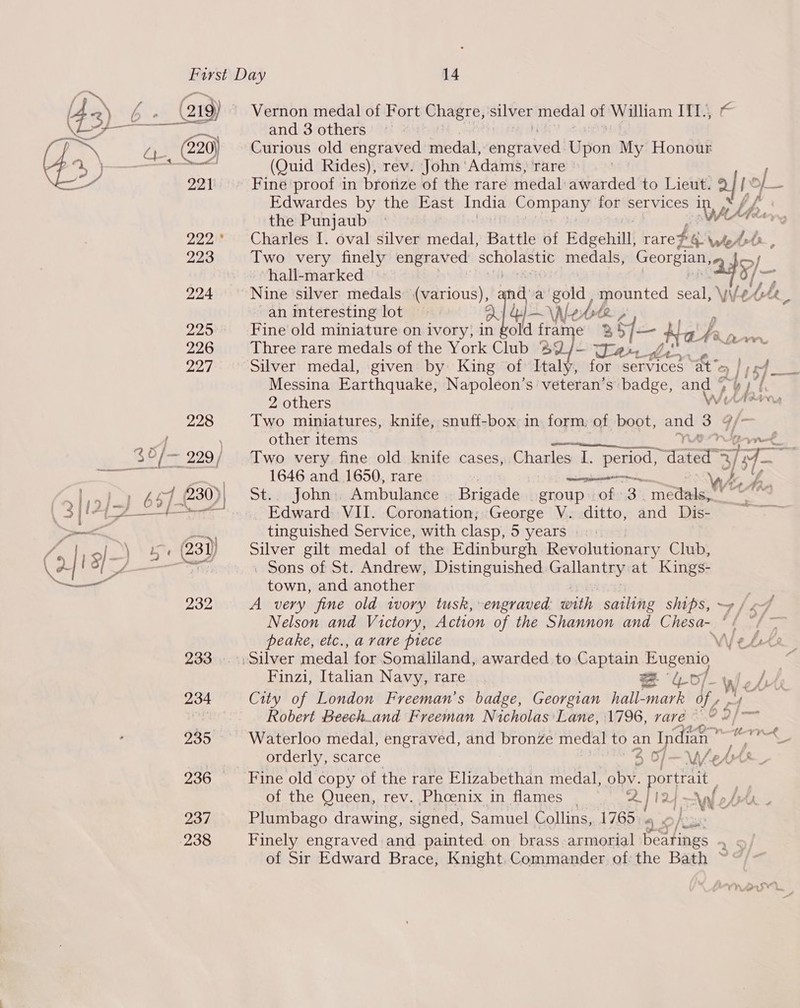 First Day 14
(43) 6 - (219) Vernon medal of Fort Chagre, silver medal of William III.,
and 3 others
(220) Curious old engraved medal, engraved Upon My Honour
(Quid Rides), rev. John Adams, rare
221 Fine proof in bronze of the rare medal awarded to Lieut. 2/10/-
Edwardes by the East India Company for services in
the Punjaub
222 Charles I. oval silver medal, Battle of Edgehill, rare Webb
223 Two very finely engraved scholastic medals, Georgian,
hall-marked
224 Nine silver medals (various), and a gold mounted seal, Webb
an interesting lot 2/4/- Webb
225 Fine old miniature on ivory, in gold frame 35/-
226 Three rare medals of the York Club 32/-
227 Silver medal, given by King of Italy, for services at
Messina Earthquake, Napoleon's veteran's badge, and
2 others
228 Two miniatures, knife, snuff-box in form of boot, and 3
other items
30/- 229 Two very fine old knife cases, Charles I. period, dated
1646 and 1650, rare
3/12/-) 65/- (230) St. John Ambulance Brigade group of 3 medals,
Edward VII. Coronation, George V. ditto, and Dis-
tinguished Service, with clasp, 5 years
(231) Silver gilt medal of the Edinburgh Revolutionary Club,
Sons of St. Andrew, Distinguished Gallantry at Kings-
town, and another
232 A very fine old ivory tusk, engraved with sailing ships,
Nelson and Victory, Action of the Shannon and Chesa-
peake, etc., a rare piece Webb
233 Silver medal for Somaliland, awarded to Captain Eugenio
Finzi, Italian Navy, rare 40/- Webb
234 City of London Freeman's badge, Georgian hall-mark of
Robert Beech and Freeman Nicholas Lane, 1796, rare
235 Waterloo medal, engraved, and bronze medal to an Indian
orderly, scarce 30/- Webb
236 Fine old copy of the rare Elizabethan medal, obv. portrait
of the Queen, rev. Phœnix in flames 2/12/- Webb
237 Plumbago drawing, signed, Samuel Collins, 1765
238 Finely engraved and painted on brass armorial bearings
of Sir Edward Brace, Knight Commander of the Bath